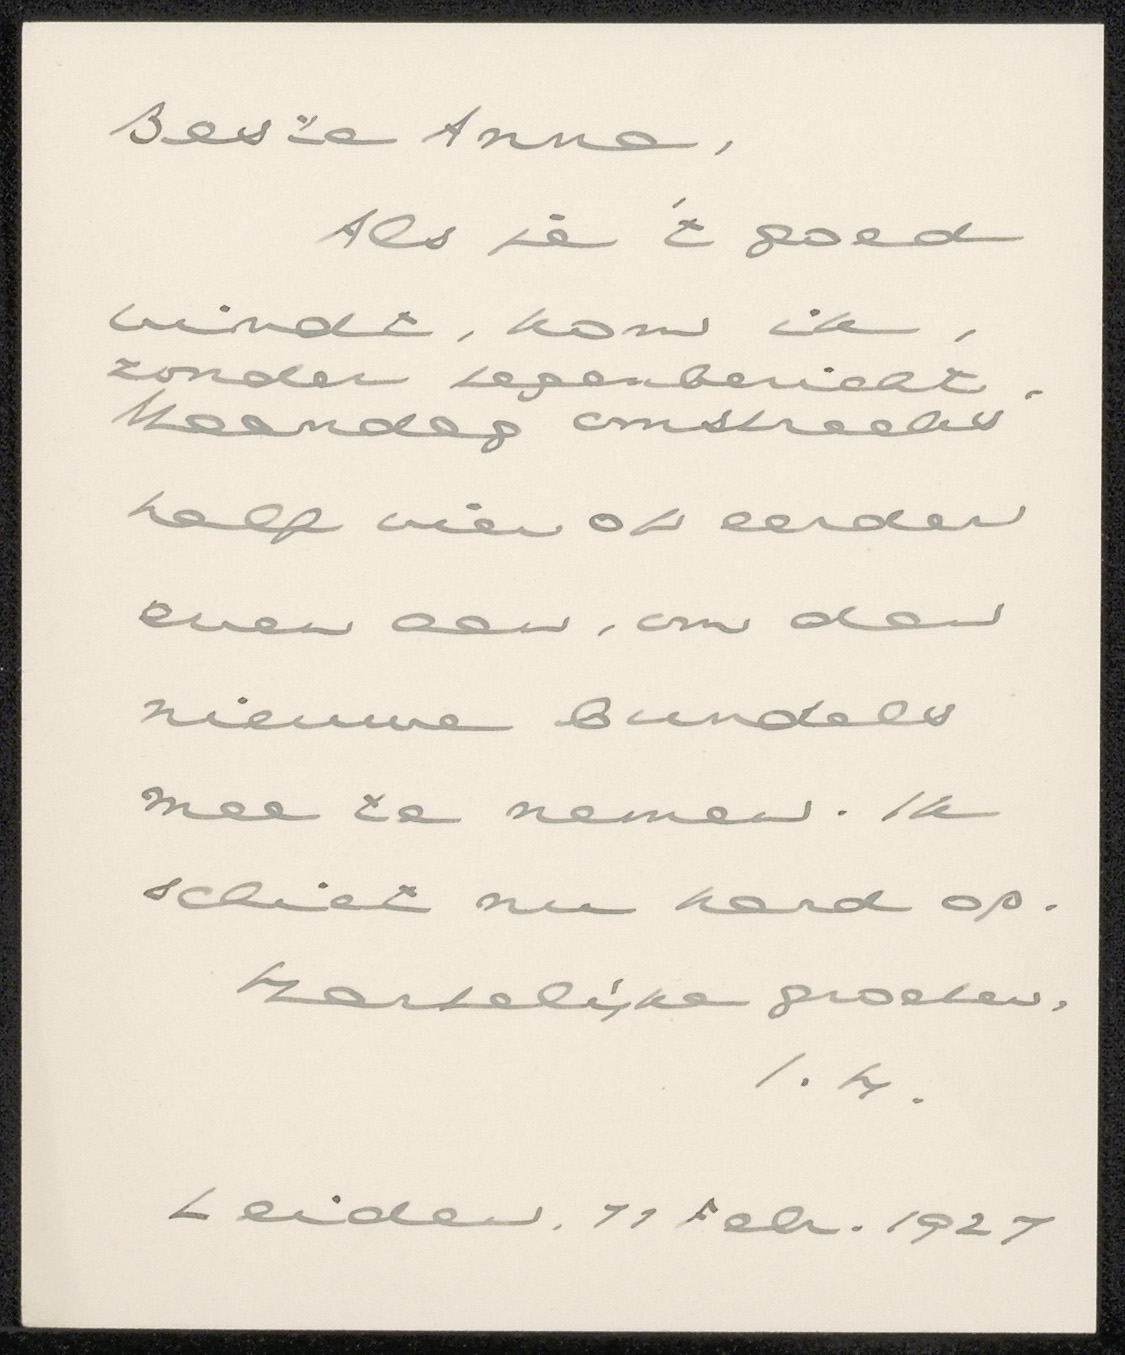 Beste Anna,
Als je 't goed
vindt, kom ik,
zonder tegenbericht,
Maandag omstreeks
half vier of eerder
even aan, om den
nieuwe bundels
mee te nemen. Ik
schiet nu hard op.
Hartelijke groeten,
I. H.
Leiden, 11 Feb. 1927